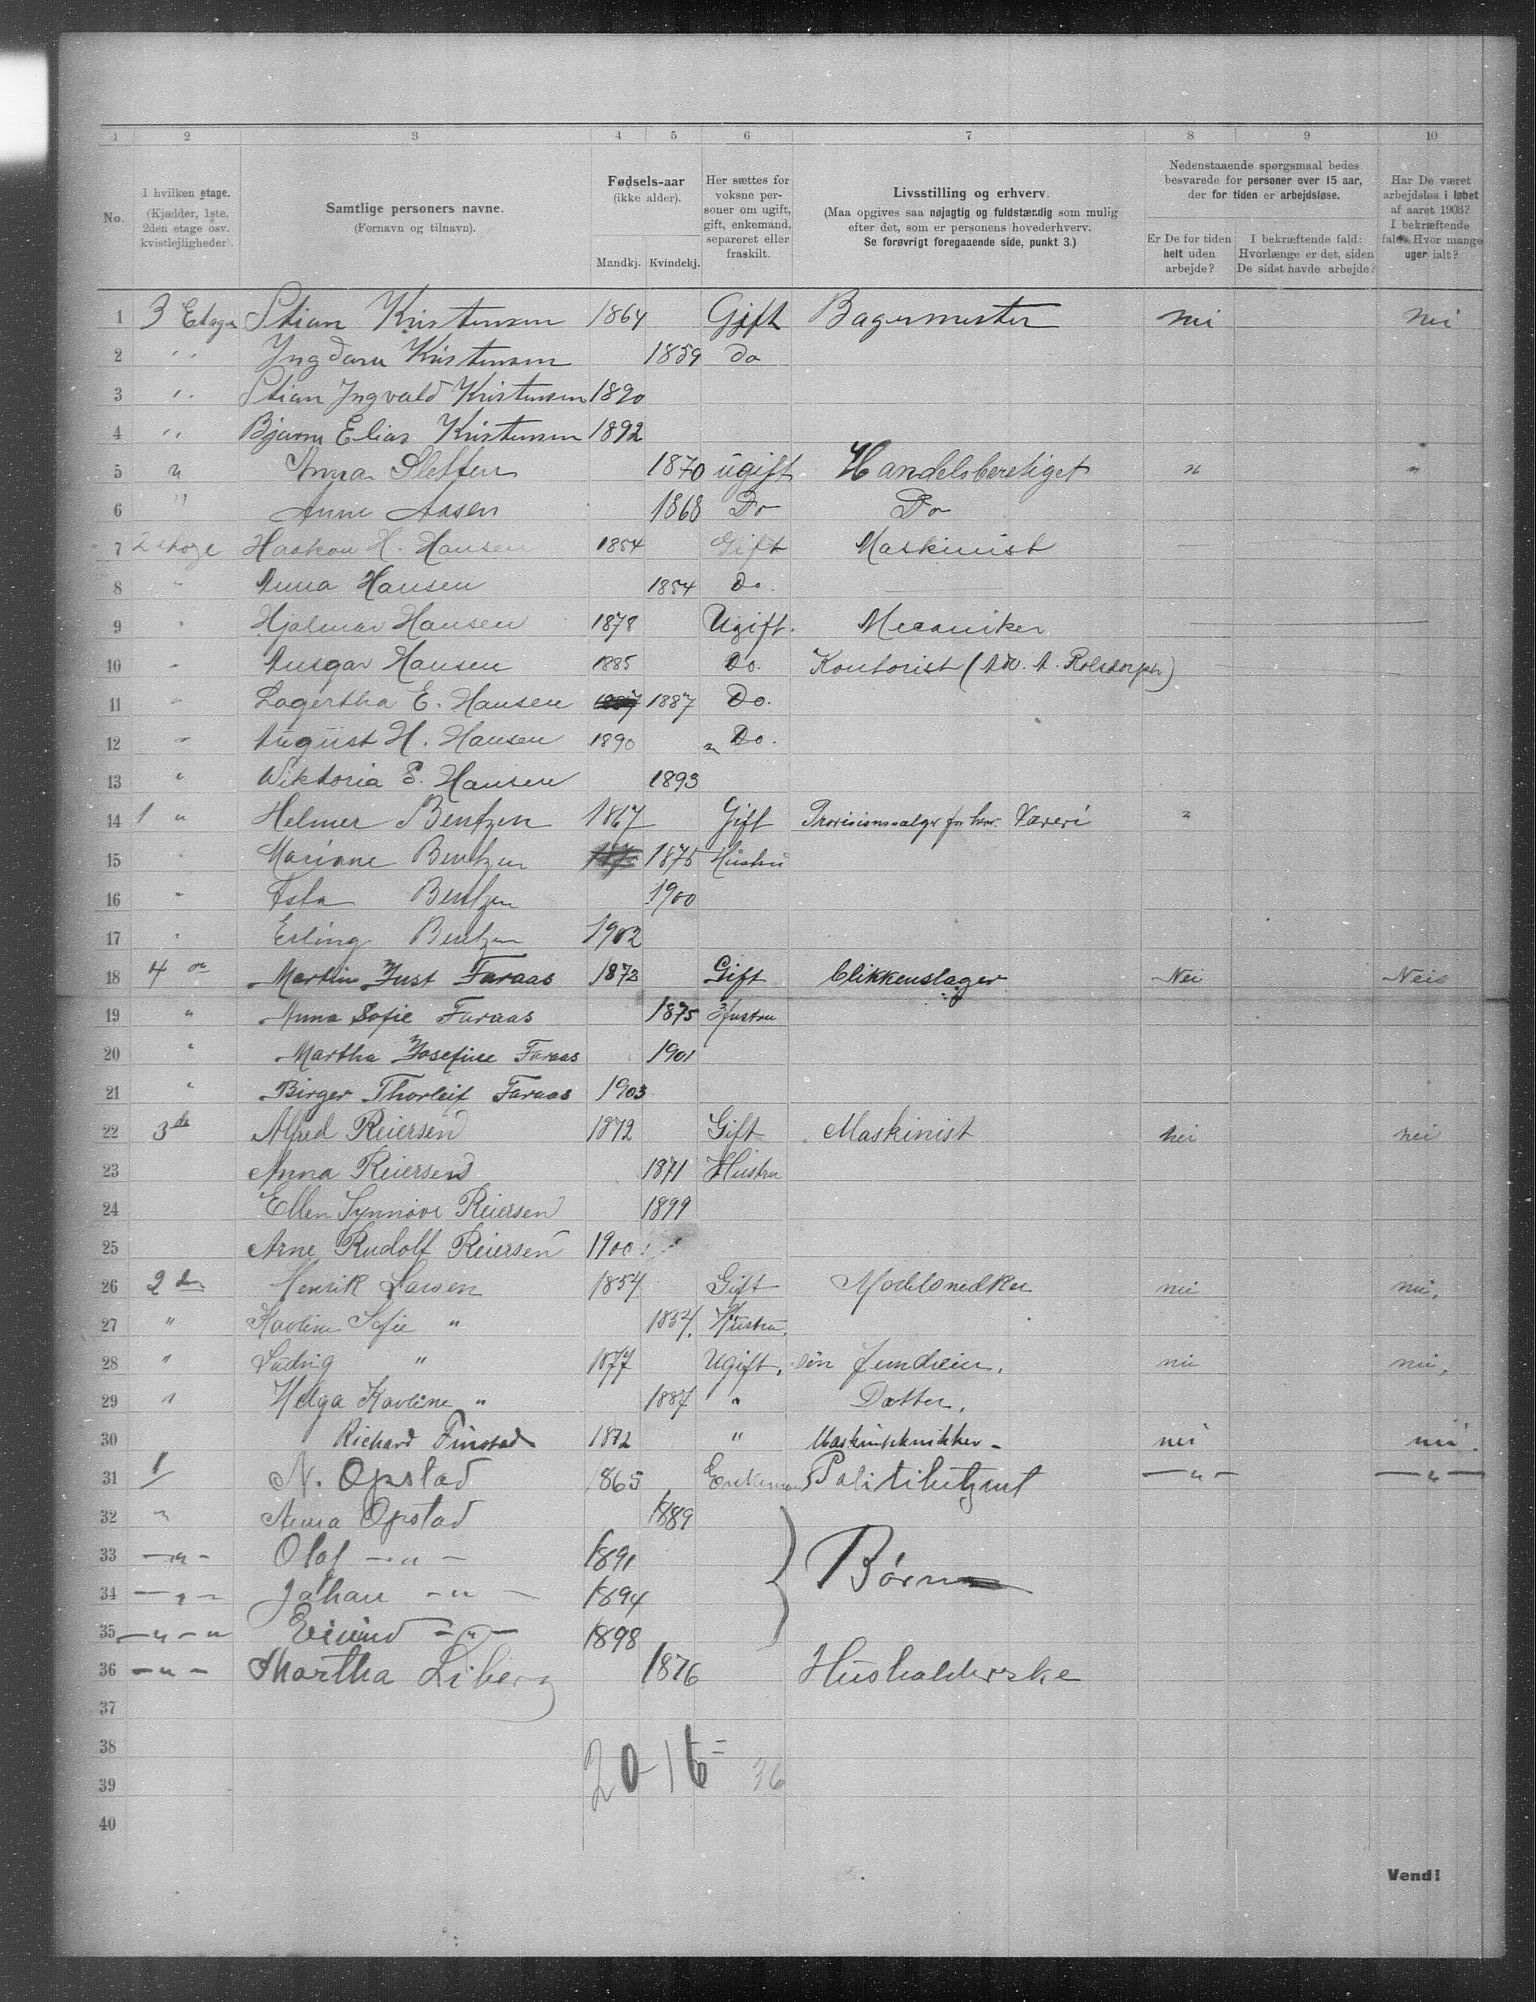 1 2 3 4 5 6 7 8 9 10
No.
I hvilken etage.
(Kjælder, 1ste,
2den etage osv.
kvistlejligheder).
Samtlige personers navne.
(Fornavn og tilnavn).
Fødsels-aar
(ikke alder).
Mandkj. Kvindekj.
Her sættes for
voksne per-
soner om ugift,
gift, enkemand,
separeret eller
fraskilt.
Livsstilling og erhverv.
(Maa opgives saa nøjagtig og fuldstændig som mulig
efter det, som er personens hovederhverv.
Se forøvrigt foregaaende side, punkt 3.)
Nedenstaaende spørgsmaal bedes
besvarede for personer over 15 aar,
der for tiden er arbejdsløse.
Er De for tiden
helt uden
arbejde?
I bekræftende fald:
Hvorlænge er det, siden
De sidst havde arbejde?
Har De været
arbejdsløs i løbet
af aaret 1903?
I bekræftende
fald: Hvor mange
uger ialt?
1 3 Etage Stian Kristensen 1864 Gift Bagermester nei nei
2 " Kristensen 1859 do
3 " Stian Ingvald Kristensen 1890
4 " Bjarne Elias Kristensen 1892
5 " Anna Sletten 1870 ugift Handelsberetiget " "
6 " Anne Aasen 1868 Do Do
7 2 etage Haakon H. Hansen 1854 Gift Maskinist
8 " Anna Hansen 1854 Do.
9 " Hjalmar Hansen 1878 Ugift. Mecaniker
10 " Ansgar Hansen 1885 Do. Kontorist
11 " Lagertha E. Hansen 1887 Do.
12 " August H. Hansen 1890 Do.
13 " Wiktoria E. Hansen 1893
14 1 " Helmer Bentzen 1867 Gift "
15 " Mariane Bentzen 1875 Hustru
16 " Bentzen 1900
17 " Erling Bentzen 1902
18 4 Martin Just Faraas 1873 Gift Blikkenslager Nei Nei
19 " Anna Sofie Faraas 1875 Hustru
20 " Martha Josefine Faraas 1901
21 " Birger Thorleif Faraas 1903
22 3de Alfred Reiersen 1872 Gift Maskinist nei nei
23 Anna Reiersen 1871 Hustru
24 Ellen Synnøve Reiersen 1899
25 Arne Rudolf Reiersen 1900
26 2den Henrik Larsen 1854 Gift Modelsnedker nei nei.
27 " Karline Sofie " 1854. Hustru.
28 " Ludvig " 1877 Ugift. søn nei nei.
29 " Helga Karline " 1887 " Datter.
30 Richard Finstad 1872 " Maskintekniker - nei nei.
31 1 N. Opstad 1865 Enkemand Politibetjent — " — — " —
32 " Anna Opstad 1889
33 — " — Olaf — " — 1891 } Børn
34 — " — Johan — " — 1894
35 — " — " Eivind — " — 1898
36 — " — Martha Liberg 1876 Husholderske
37
38
39 20 - 16 = 36
40
Vend!